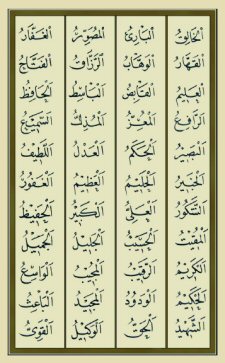 الخالق البارئ المصور الغفار
القهار الوهاب الرزاق الفتاح
العليم القابض الباسط الخافض
الرافع المعز المذل السميع
البصير الحكم العدل اللطيف
الخبير الحليم العظيم الغفور
الشكور العلي الكبير الحفيظ
المقيت الحسيب الجليل الجميل
الكريم الرقيب المجيب الواسع
الحكيم الودود المجيد الباعث
الشهيد الحق الوكيل القوي